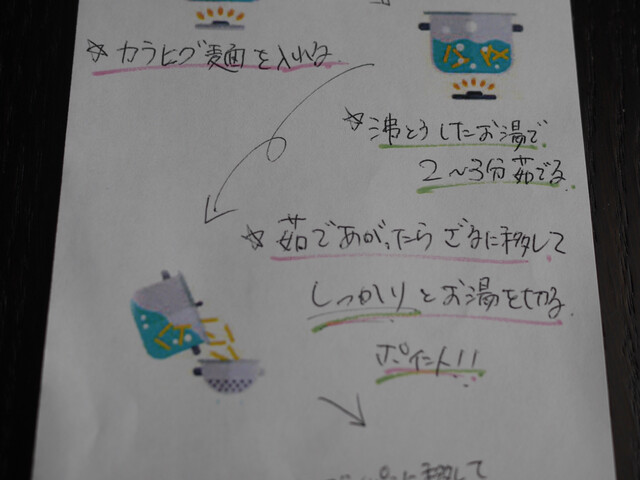 ☆カラヒグ麺を入れる
☆沸とうしたお湯で
2〜3分茹でる
☆茹であがったらざるに移して
しっかりとお湯を切る
ポイント!!
に移して